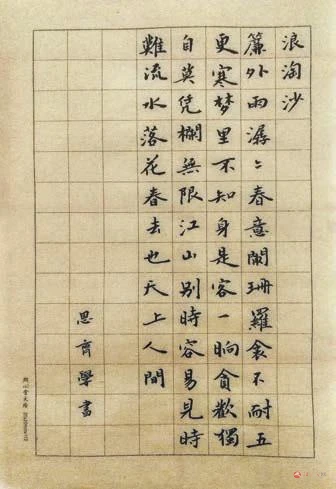 浪淘沙
簾外雨潺々春意闌珊羅衾不耐五
更寒梦里不知身是客一晌貪歡獨
自莫凭欄無限江山別時容易見時
難流水落花春去也天上人間
思齊學書